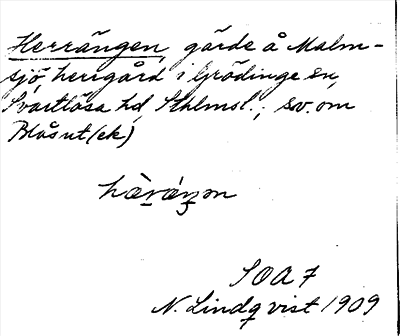 Herrängen, gärde å Malm-
sjö, herrgård i Grödinge sn,
Svartlösa hd, Sthlmsl.; sv. om
Blåsut(ek)
hæ̀ráŋən
SOA 7
N. Lindqvist 1909